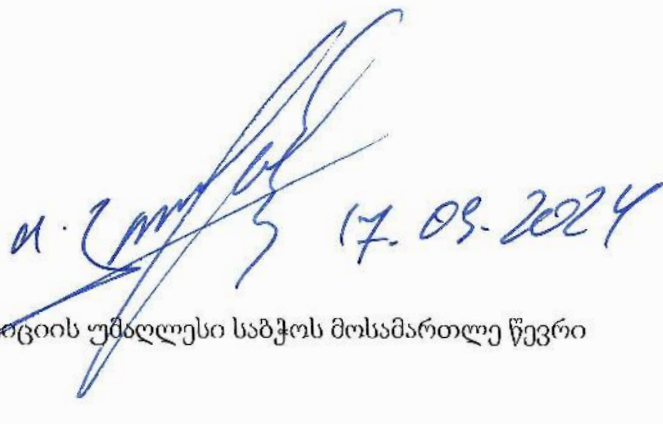 17. 09. 2024
იციის უმაღლესი საბჭოს მოსამართლე წევრი